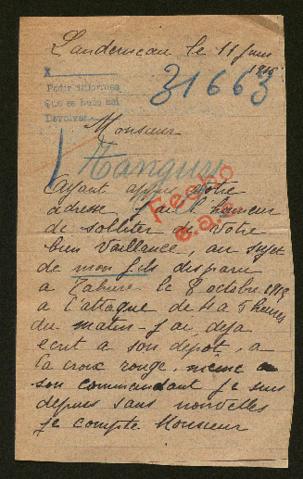 Landerneau le 11 Juin
1916
31663
X
Pedir informes
Que se halla así
Devolver
Monsieur
Tanguy
Ayant appris votre
adresse j ai l honeur
de solliter de Votre
bien Vaillance, au sujet
de mon fils disparu
a Tahure le 8 octobre 1915
a l'attaque de 4 a 5 heures
du matin - j ai, deja
ecrit a son depot, a
la croix rouge, meme a
son commandant je suis
depuis sans nouvelles
je compte Monsieur
Fecho